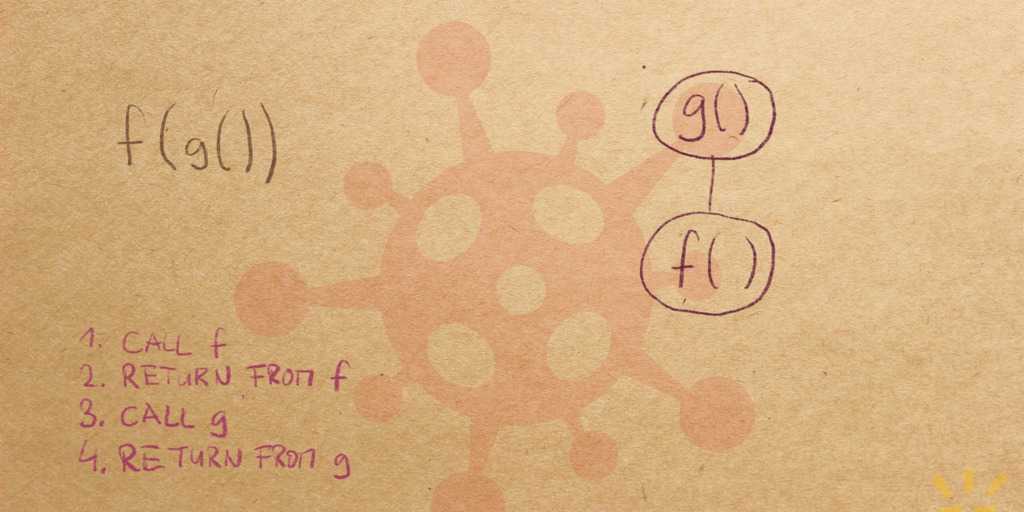 f(g())
g()
f()
1. CALL f
2. RETURN FROM f
3. CALL g
4. RETURN FROM g